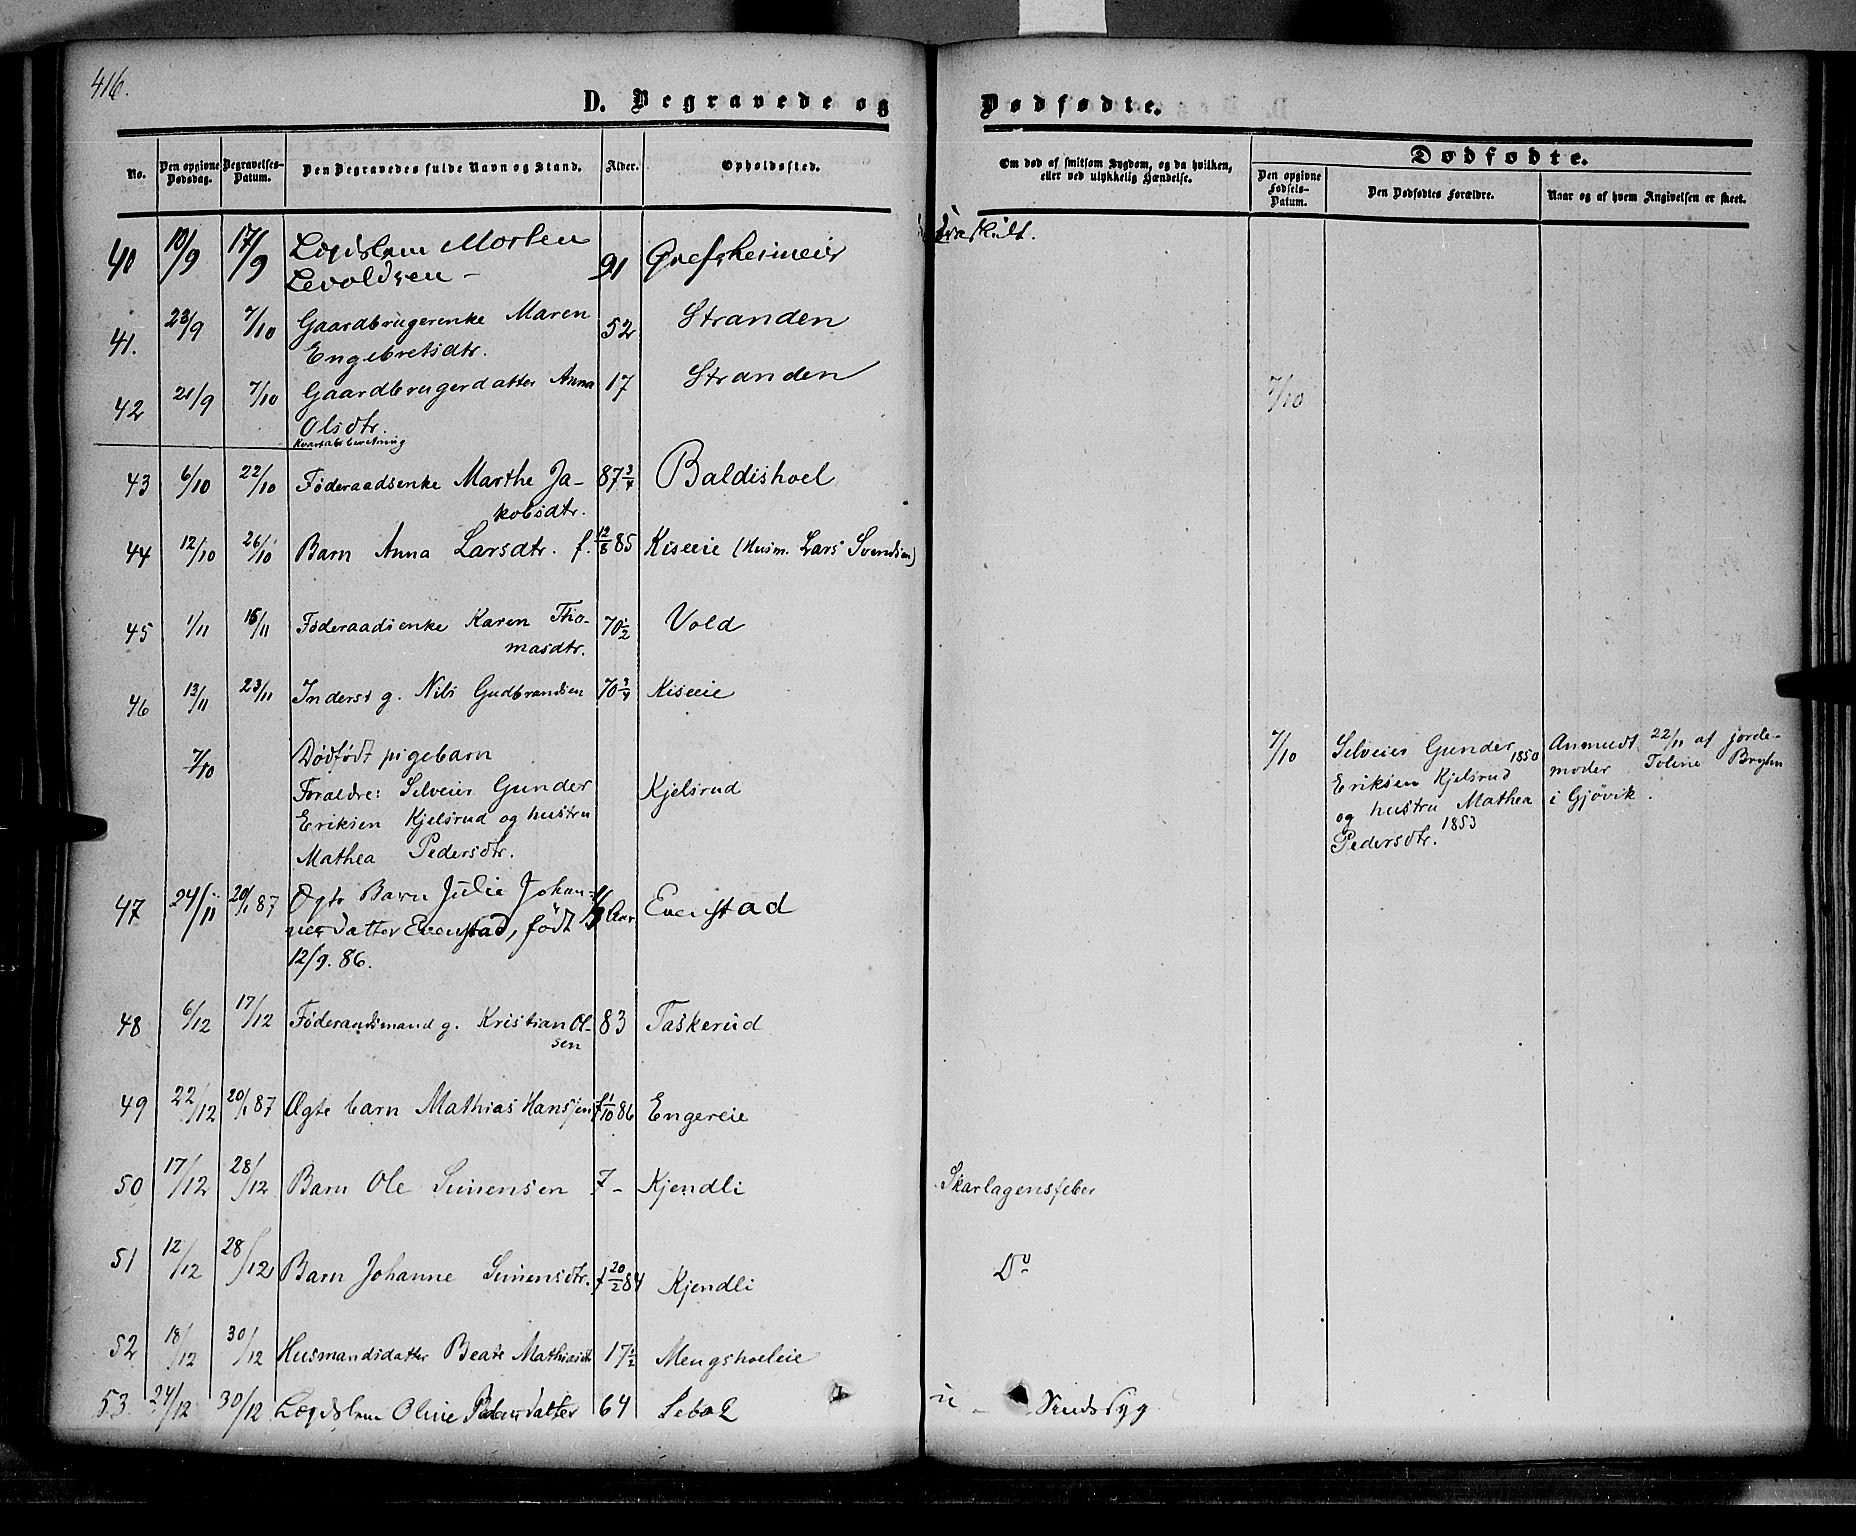 416.
D. Begravede og Dødfødte.
No. Den opgivne Dødsdag. Begravelses-Datum. Den Begravedes fulde Navn og Stand. Alder. Opholdssted. Om død af smitsom Sygdom, og da hvilken, eller ved ulykkelig Hændelse. Dødfødte.
Den opgivne Fødsels-Datum. Den Dødfødtes Forældre. Naar og af hvem Angivelsen er skeet.
40 10/9 17/9 Lægdslem Morten 91 Grefsheimeie
Levoldsen - fraskilt.
41. 23/9 7/10 Gaardbrugerenke Maren 52 Stranden
Engebretsdtr.
42 21/9 7/10 Gaardbrugerdatter Anna 17 Stranden 7/10
Olsdtr.
Kvartalsberetning
43 6/10 22/10 Føderaadsenke Marthe Ja- 87 3/4 Baldishoel
kobsdtr.
44 12/10 26/10 Barn Anna Larsdtr. f. 12/8 85 Kiseeie (Husm. Lars Svendsen)
45 1/11 15/11 Føderaadsenke Karen Tho- 70 1/2 Vold
masdtr.
46 13/11 23/11 Inderst g. Nils Gudbrandsen 70 3/4 Kiseeie
7/10 Dødfødt pigebarn
Foraldre: Selveier Gunder Kjelsrud
Eriksen Kjelsrud og hustru
Mathea Pedersdtr.
7/10 Selveier Gunder 1850
Eriksen Kjelsrud
og hustru Mathea
Pedersdtr. 1853
Anmeldt 22/11 af jorde-
moder Toline Bryhn
i Gjøvik.
47 24/11 20/1 87 Ægte Barn Julie Johan- Aar Evenstad
nesdatter Evenstad, født
12/9. 86.
48 6/12 17/12 Føderaadsmand g. Kristian Ol- 83 Taskerud
sen
49 22/12 20/1 87 Ægte barn Mathias Hansen f 1/10 86 Engereie
50 17/12 28/12 Barn Ole Simensen 7 - Kjendli Skarlagensfeber
51 12/12 28/12 Barn Johanne Simensdtr. f 20/2 84 Kjendli Do
52 18/12 30/12 Husmandsdatter Beate Mathiasdt 17 1/2 Mengshoeleie
53 24/12 30/12 Lægdslem Oline Pedersdatter 64 Sindssyg